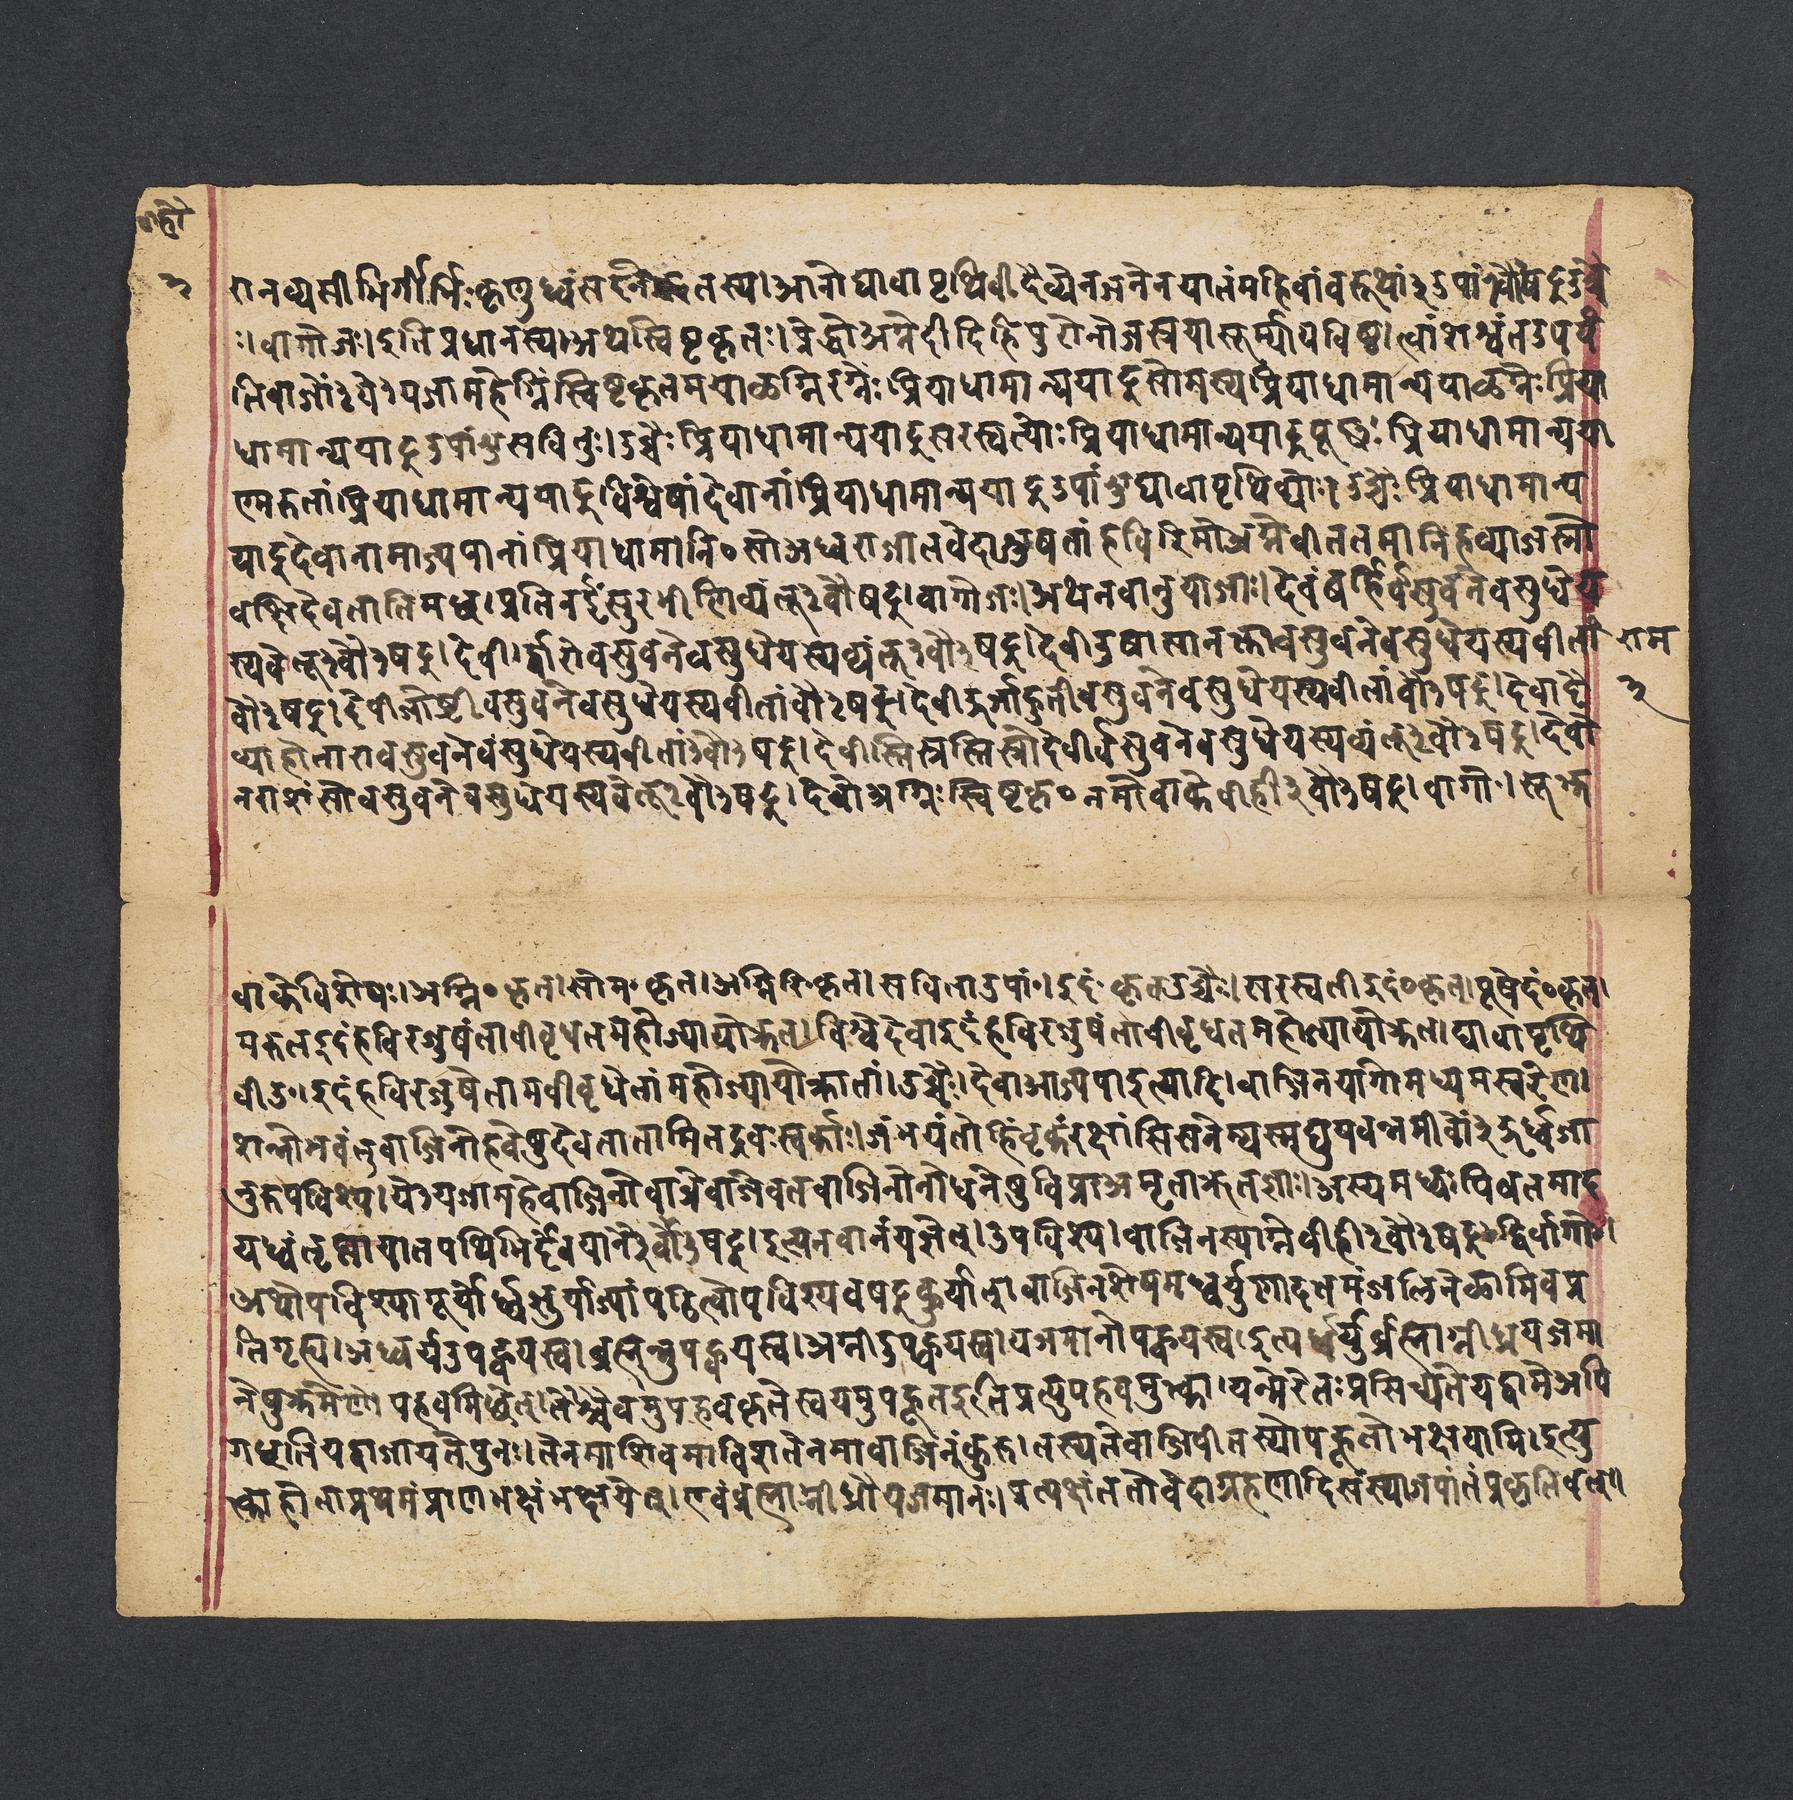 हौ
३
रा नव्यसीभिर्गीर्भिः कृणुध्वं सदने ऋतस्य। आनो द्यावापृथिवी दैव्येन जनेन यातं महि वां वरूथां३उपां३वौषट्उच्चै
ः। वागोजः। इति प्रधानस्य। अथ स्विष्टकृतः। प्रेद्धो अग्ने दीदिहि पुरो नो जस्रया सूर्म्या यविष्ठ। त्वां शश्वंत उपयं
ति वाजो३ये३ यजामहेग्निं स्विष्टकृतमयाळग्निरग्नेः प्रिया धामान्ययाट्सोमस्य प्रिया धामान्ययाळग्नेः प्रिया
धामान्ययाट्उपांशु सवितुः। उच्चैः प्रिया धामान्ययाट्सरस्वत्याः प्रिया धामान्ययाट्पूष्णः प्रिया धामान्यया
ण्मरुतां प्रिया धामान्ययाट्विश्वेषां देवानां प्रिया धामान्ययाट्उपांशु द्यावापृथिव्योः। उच्चैः प्रिया धामान्य
याट्देवानामाज्यपानां प्रिया धामानि० सो अध्वरा जातवेदा जुषतां हविरिमो अग्ने वीततमानि हव्याजस्रो
वक्षि देवतातिमच्छ। प्रति न ईं सुरभीणि व्यंतू३वौषट्। वागोजः। अथ नवानुयाजाः। देवं बर्हिर्वसुवने वसुधेय
स्य वेतू३वौ३षट्। देवी। र्द्वारो वसुवने वसुधेयस्य व्यंतू३वौ३षट्। देवी उषासानक्ता वसुवने वसुधेयस्य वीतां राम
वौ३षट्। देवी जोष्ट्री वसुवने वसुधेयस्य वीतां वौ३षट्। देवी ऊर्जाहुती वसुवने वसुधेयस्य वीतां वौ३षट्। देवा दै ३
व्या होतारा वसुवने वसुधेयस्य वीतां३वौ३षट्। देवीस्तिस्रस्तिस्रो देवीर्वसुवने वसुधेयस्य व्यंतू३वौ३षट्। देवो
नराशंसो वसुवने वसुधेयस्य वेतू३वौ३षट्। देवो अग्निः स्विष्टकृ० नमो वाके वीही३वौ३षट्। वागो। सूक्त
वाके विशेषः। अग्नि० कृत। सोम० कृत। अग्निरि० कृत। सविता उपां०। इदं० कृत उच्चैः। सरस्वती इदं० कृत। पूषेदं० कृत।
मरुत इदं हविरजुषंतावीवृधंत महो ज्यायोक्रत। विश्वेदेवा इदं हविरजुषंतावीवृधंत महो ज्यायोक्रत। द्यावापृथि
वी उ०। इदं हविरजुषेतामवीवृधेतां महो ज्यायोक्रातां। उच्चैः। देवा आज्यपा इत्यादि। वाजिनयागो मध्यमस्वरेण।
शन्नो भवंतु वाजिनो हवेषु देवताता मितद्रवः स्वर्काः। जंभयंतोहिं वृकं रक्षांसि सनेम्यस्मद्युयवन्नमीवों३ऊर्ध्वजा
नुरुपविश्य। ये३ यजामहे वाजिनो वाजेवाजेवत वाजिनो नो धनेषु विप्रा अमृता ऋतज्ञाः। अस्य मध्वः पिबत माद
यध्वं तृप्ता यात पथिभिर्देवयानै३र्वौ३षट्। इत्यनवानं यजेत्। उपविश्य। वाजिनस्याग्ने वीही३वौ३षट्। द्विर्वागो।
अथोपविश्या पूर्वोर्ध्वजुर्याज्यां पठित्वोपविश्य वषट्कुर्यात्। वाजिनशेषमध्वर्युणादत्तमंजलिनेळामिव प्र
तिगृह्य। अध्वर्य उपह्वयस्व। ब्रह्मन्नुपह्वयस्व। अग्नीदुपह्वयस्व। यजमानोपह्वयस्व इत्यध्वर्युब्रह्माग्नीध्रयजमा
नेषु क्रमेणोपहवमिछेत्। तैश्चैवमुपहवकृते स्वयमुपहूत इति प्रत्युपहवमुक्त्वा। यन्मे रेतः प्रसिच्यते यद्वा मे अपि
गछति यद्वा जायते पुनः। तेन मा शिवमाविश तेन मा वाजिनं कुरु। तस्य ते वाजिपीतस्योपहूतो भक्षयामि। इत्यु
क्त्वा होता प्रथमं प्राणभक्षं भक्षयेत्। एवं ब्रह्माग्नीध्रौ यजमानः। प्रत्यक्षं ततो वेदाग्रहणादि संस्थाजपांतं प्रकृतिवत्॥